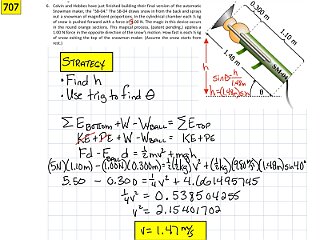 707
6. Calvin and Hobbes have just finished building their final version of the automatic
snowman maker, the "SB-04." The SB-04 draws snow in from the back and sprays
out a snowman of magnificent proportions. In the cylindrical chamber each ½ kg
of snow is pushed forward with a force of 5.00 N. The magic in this device occurs
in the round orange sections. This magical process, (patent pending,) applies a
1.00 N force in the opposite direction of the snow's motion. How fast is each ½ kg
of snow exiting the top of the snowman maker. (Assume the snow starts from
rest.)
0.300 m
1.10 m
1.48 m
SB-04
h
sin θ = h/1.48m
h=(1.48m)sinθ
STRATEGY
• Find h
• Use trig to find θ
ΣE BOTTOM + W - W BALL = ΣE TOP
KE + PE + W - W BALL = KE + PE
Fd - F d = ½mv² + mgh
(5N)(1.10m)-(1.00N)(0.300m)=½(½kg)v²+(½kg)(9.8 m/s²)(1.48m)sin40°
5.50 - 0.300 = ¼v² + 4.661495745
¼v² = 0.538504255
v² = 2.15401702
v = 1.47 m/s